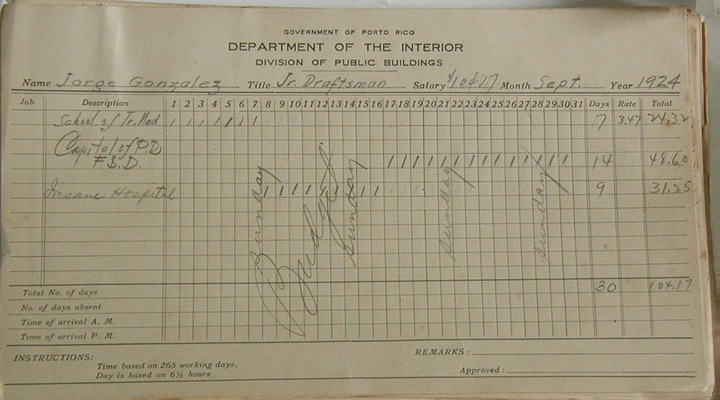 GOVERNMENT OF PORTO RICO
DEPARTMENT OF THE INTERIOR
DIVISION OF PUBLIC BUILDINGS
Name Jorge Gonzalez Title Jr. Draftsman Salary $104.17 Month Sept. Year 1924
Job Description 1 2 3 4 5 6 7 8 9 10 11 12 13 14 15 16 17 18 19 20 21 22 23 24 25 26 27 28 29 30 31 Days Rate Total
School of Tr. Med. 7 3.47 24.32
Capitol of P.D.
F.S.D. 14 48.60
Insane Hospital 9 31.25
Sunday Sunday Sunday Sunday
Budget
Total No. of days 30 104.17
No. of days absent
Time of arrival A. M.
Time of arrival P. M.
INSTRUCTIONS:
Time based on 265 working days.
Day is based on 6½ hours
REMARKS:
Approved: